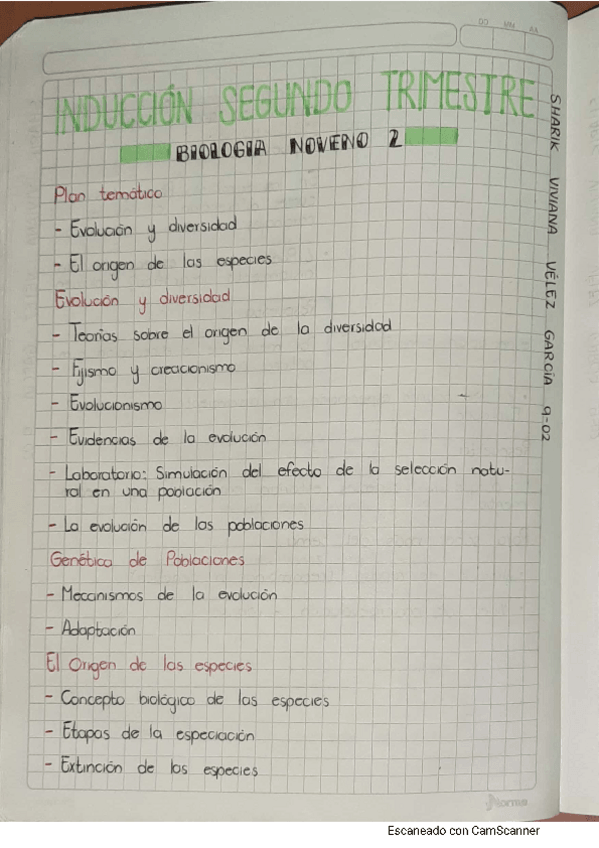 DD MM AA
INDUCCIÓN SEGUNDO TRIMESTRE
BIOLOGIA NOVENO 2
Plan temático
- Evolución y diversidad
- El origen de las especies
Evolución y diversidad
- Teorías sobre el origen de la diversidad
- Fijismo y creacionismo
- Evolucionismo
- Evidencias de la evolución
- Laboratorio: Simulación del efecto de la selección natu-
ral en una población
- La evolución de las poblaciones
Genética de Poblaciones
- Mecanismos de la evolución
- Adaptación
El Origen de las especies
- Concepto biológico de las especies
- Etapas de la especiación
- Extinción de las especies
SHARIK VIVIANA VÉLEZ GARCÍA 9-02
Norma
Escaneado con CamScanner